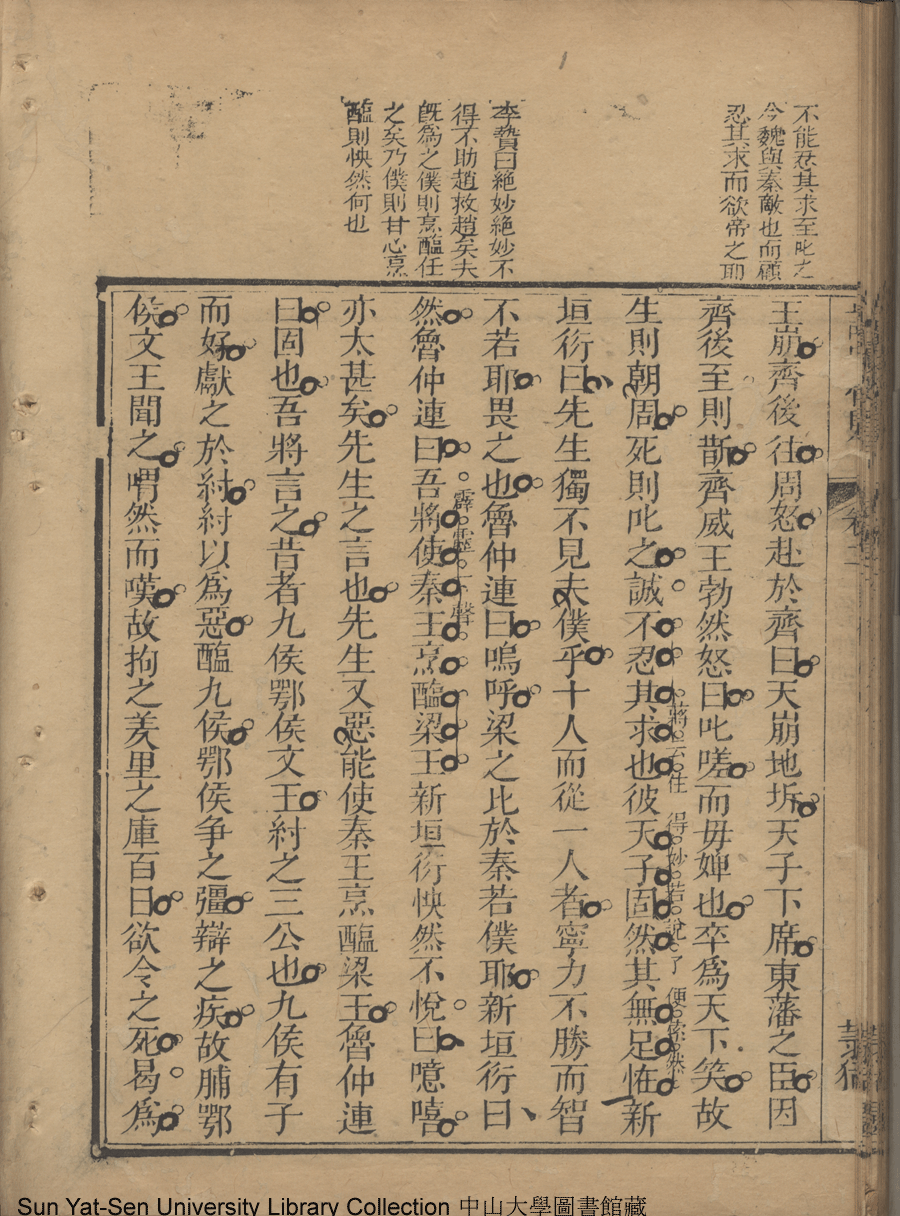 不能忍其求至叱之
今魏與秦敵也而顧
忍其求而欲帝之耶
李贄曰絕妙絕妙不
得不助趙救趙矣夫
旣爲之僕則烹醢任
之矣乃僕則甘心烹
醢則怏然何也
王崩齊後往周怒赴於齊曰天崩地坼天子下席東藩之臣因
齊後至則斮齊威王勃然怒曰叱嗟而毋婢也卒爲天下笑故
生則朝周死則叱之誠不忍其求也彼天子固然其無足怪新
蔣云住得妙若說了便索然
垣衍曰先生獨不見夫僕乎十人而從一人者寧力不勝而智
不若耶畏之也魯仲連曰嗚呼梁之比於秦若僕耶新垣衍曰
然魯仲連曰吾將使秦王烹醢梁王新垣衍怏然不悅曰噫嘻
霹靂一聲
亦太甚矣先生之言也先生又惡能使秦王烹醢梁王魯仲連
曰固也吾將言之昔者九侯鄂侯文王紂之三公也九侯有子
而好獻之於紂紂以爲惡醢九侯鄂侯争之彊辯之疾故脯鄂
侯文王聞之喟然而嘆故拘之羑里之庫百日欲令之死曷爲
Sun Yat-Sen University Library Collection 中山大學圖書館藏